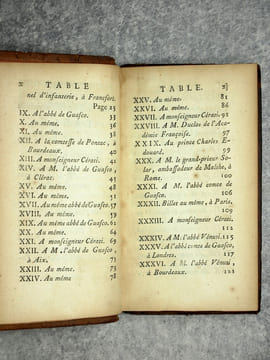 x TABLE
nel d'infanterie, à Francfort.
Page 25
IX. A l'abbé de Guasco. 33
X. Au même. 35
XI. Au même. 38
XII. A la comtesse de Pontac, à
Bourdeaux. 40
XIII. A monseigneur Cérati. 42
XIV. A M. l'abbé de Guasco,
à Clérac. 45
XV. Au même. 48
XVI. Au même. 52
XVII. Au même abbé de Guasco. 57
XVIII. Au même. 59
XIX. Au même. 62
XX. Au même. 64
XXI. A monseigneur Cérati. 67
XXII. A M. l'abbé de Guasco,
à Aix. 71
XXIII. Au même. 73
XXIV. Au même 78
TABLE. xj
XXV. Au même. 81
XXVI. Au même. 86
XXVII. A monseigneur Cérati. 92
XXVIII. A M. Duclos de l'Aca-
démie Françoise. 97
XXIX. Au prince Charles E-
douard. 99
XXX. A M. le grand-prieur So-
lar, ambassadeur de Malthe, à
Rome. 100
XXXI. A M. l'abbé comte de
Guasco. 106
XXXII. Billet au même, à Paris,
109
XXXIII. A monseigneur Cérati.
112
XXXIV. A M. l'abbé Vénuti. 115
XXXV. A l'abbé comte de Guasco,
à Londres. 117
XXXVI. A M. l'abbé Vénuti,
à Bourdeaux. 121